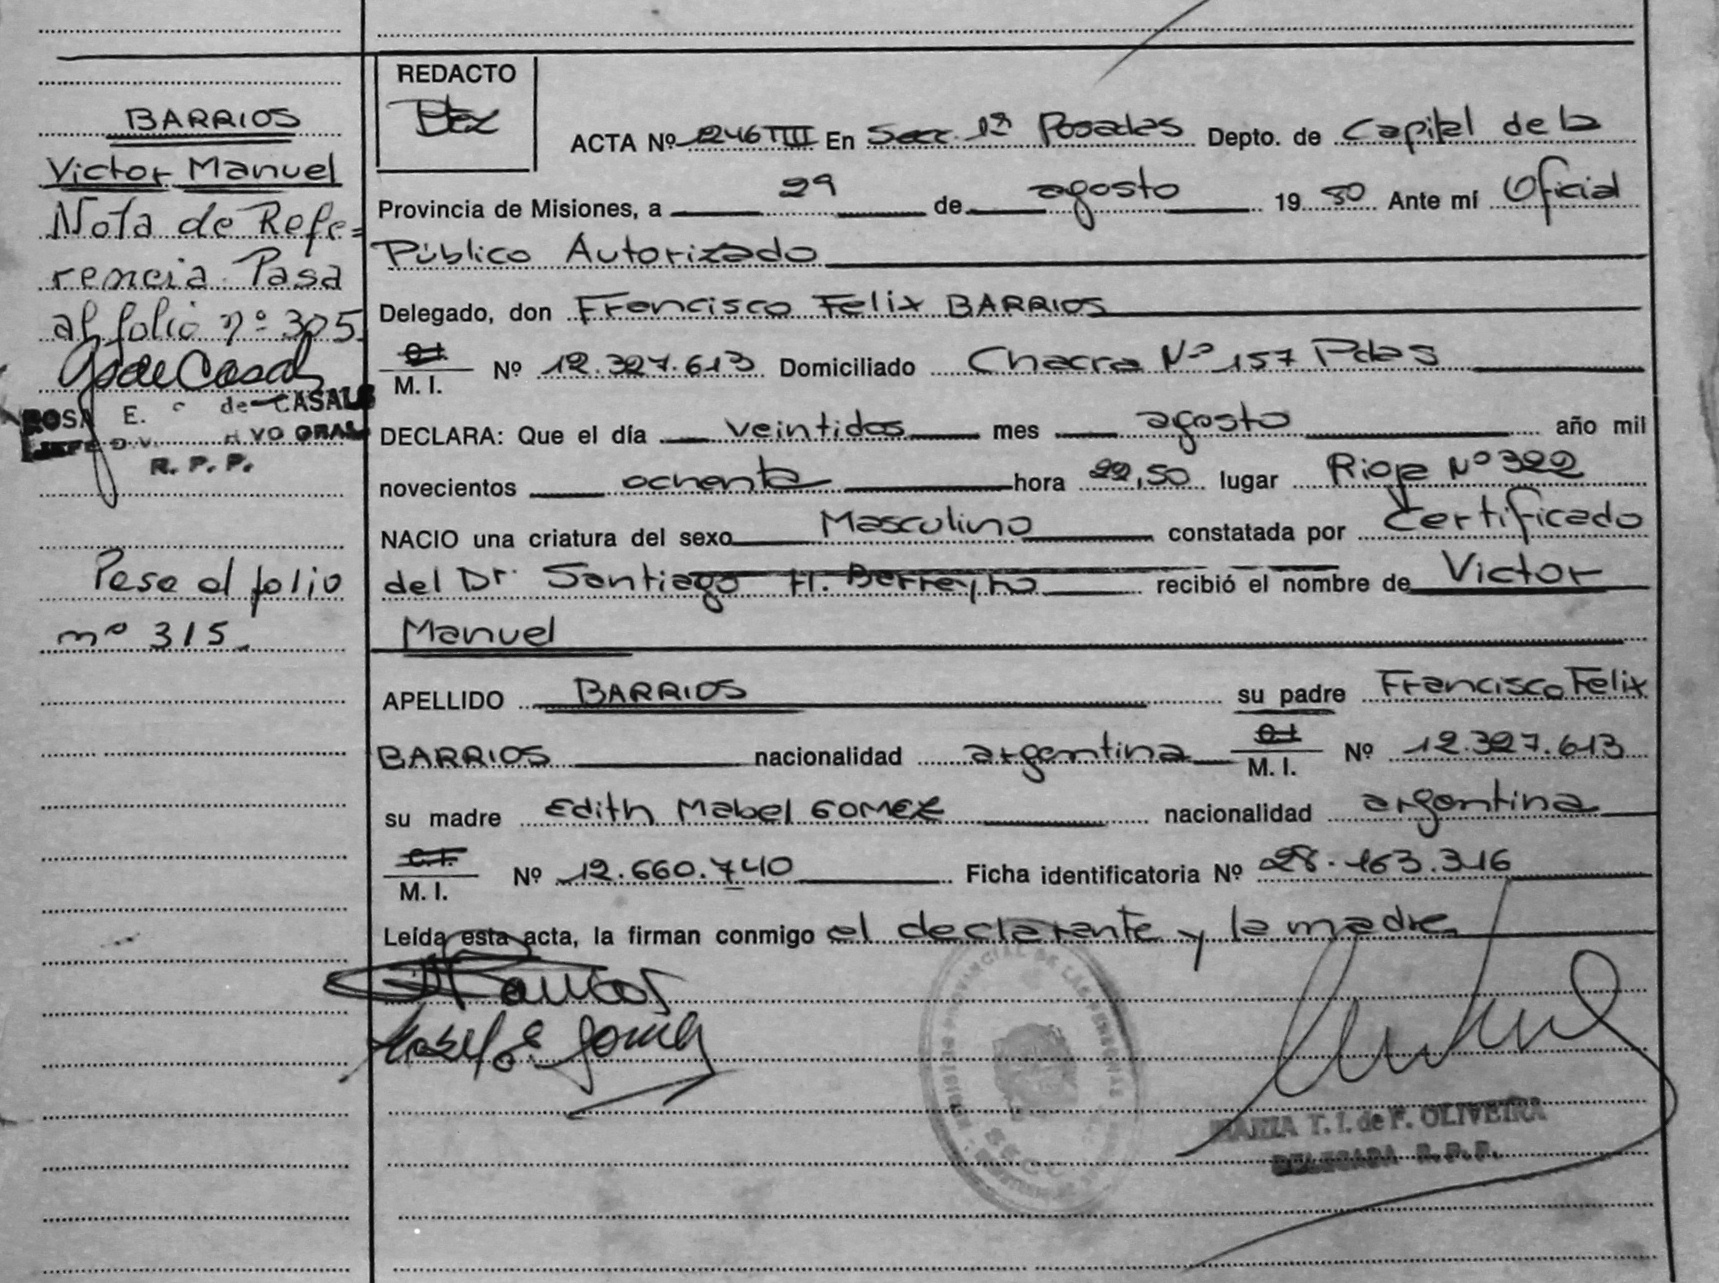 BARRIOS
Victor Manuel
Nota de Refe=
rencia Pasa
al folio nº 305
ROSA E. de CASALS
JEFE
R. P. P.
Pase al folio
nº 315
REDACTO
ACTA Nº 246 TIII En Secc. 1ª Posadas Depto. de Capital de la
Provincia de Misiones, a 29 de agosto 19 80 Ante mí Oficial
Público Autorizado
Delegado, don Francisco Felix BARRIOS
C.I.
M. I. Nº 12.327.613 Domiciliado Chacra Nº 157 Pdas
DECLARA: Que el día veintidos mes agosto año mil
novecientos ochenta hora 22,50 lugar Rioja Nº 322
NACIO una criatura del sexo Masculino constatada por Certificado
del Dr. Santiago H. Berreyro recibió el nombre de Victor
Manuel
APELLIDO BARRIOS su padre Francisco Felix
BARRIOS nacionalidad argentina C.I. M. I. Nº 12.327.613
su madre Edith Mabel GOMEZ nacionalidad argentina
C.I.
M. I. Nº 12.660.740 Ficha identificatoria Nº 28.163.316
Leída esta acta, la firman conmigo el declarante y la madre
MARIA T. I. de F. OLIVEIRA
DELEGADA R. P. P.